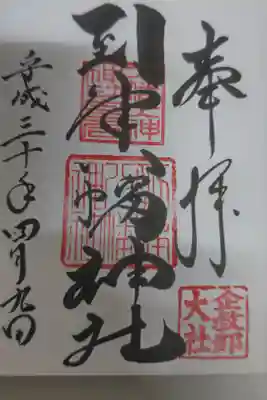 奉拝
到津八幡神社
平成三十年四月九日
企救郡
大社